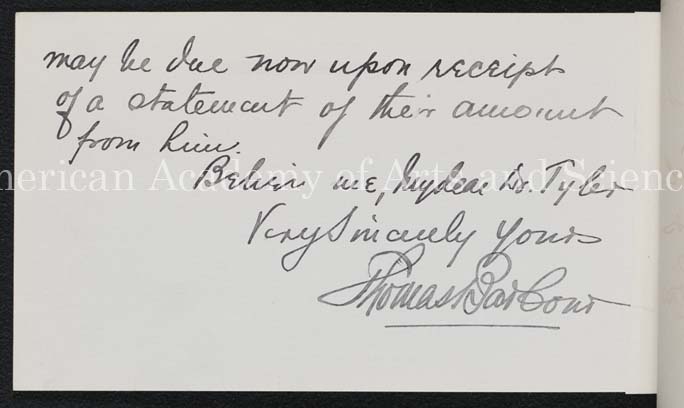 may be due now upon receipt
of a statement of their amount
from him.
American Academy of Arts and Sciences
Believe me, My dear Dr. Tyler
Very Sincerely Yours
Thomas Barbour